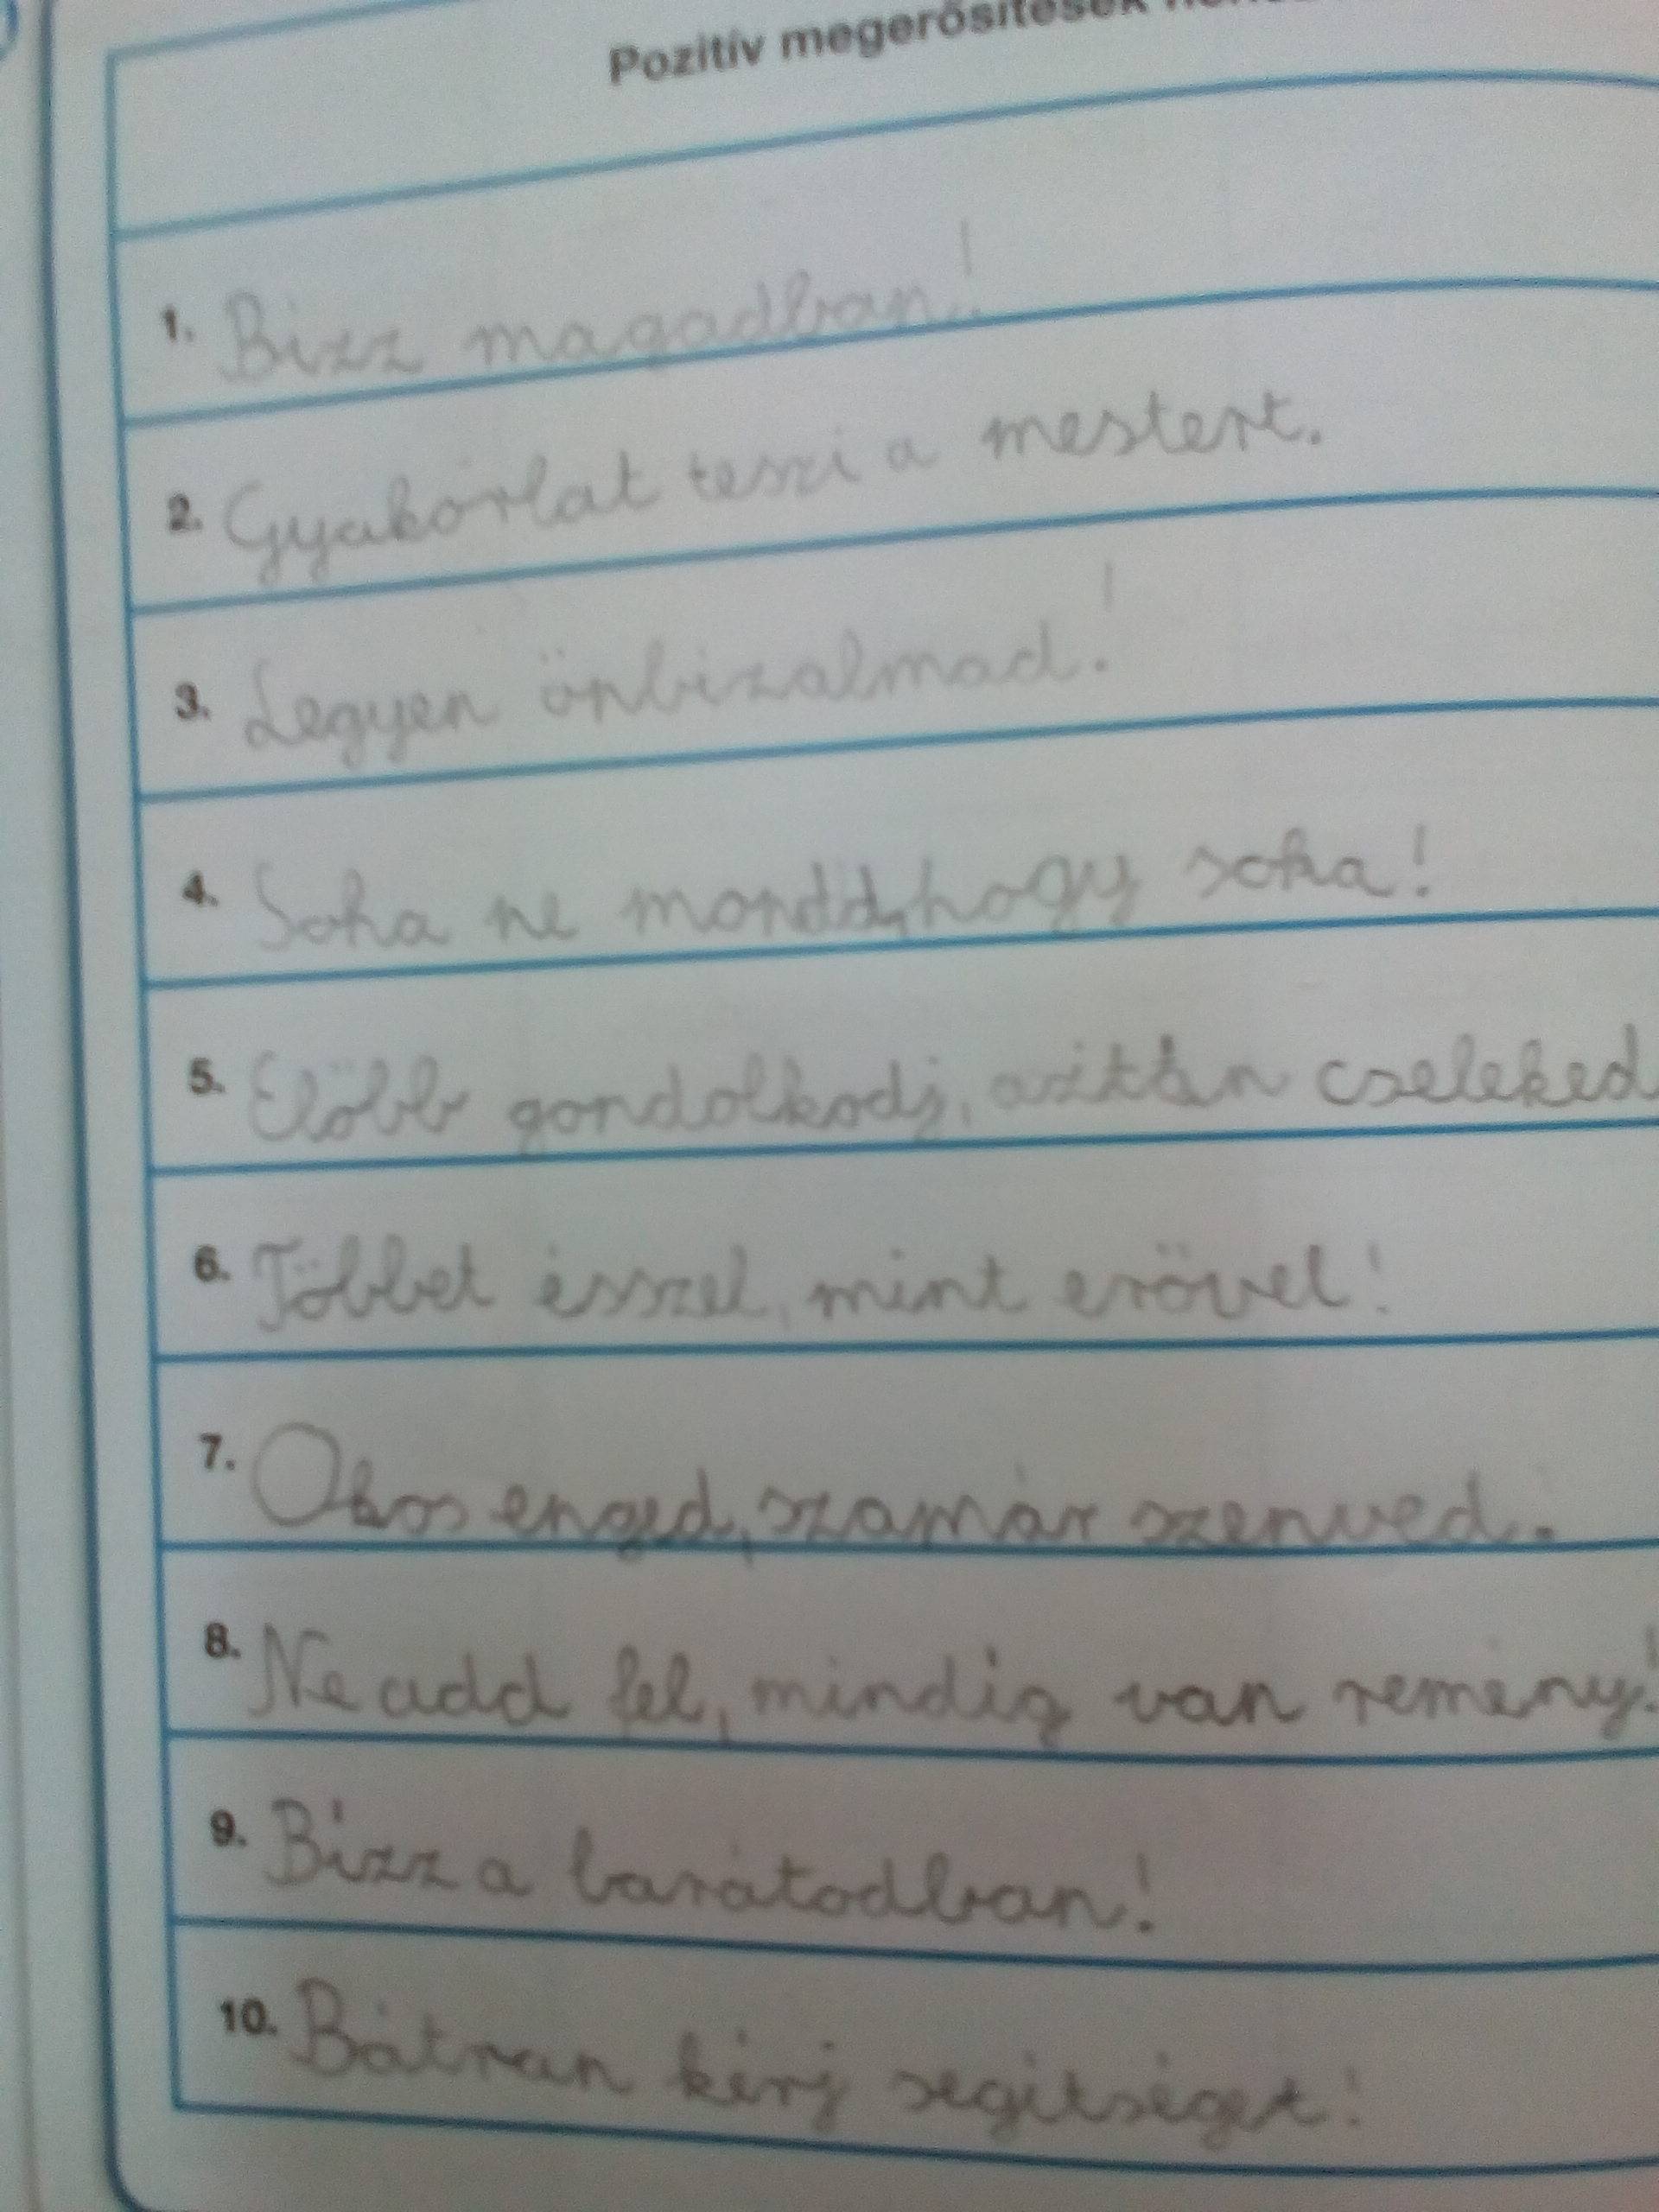 Pozitív megerősítések
1. Bizz magadban!
2. Gyakorlat teszi a mestert.
3. Legyen önbizalmad!
4. Soha ne mondd, hogy soha!
5. Előbb gondolkodj, aztán cseleked
6. Többet ésszel, mint erővel!
7. Okos enged, szamár szenved.
8. Ne add fel, mindig van remény!
9. Bízz a barátodban!
10. Bátran kérj segítséget!